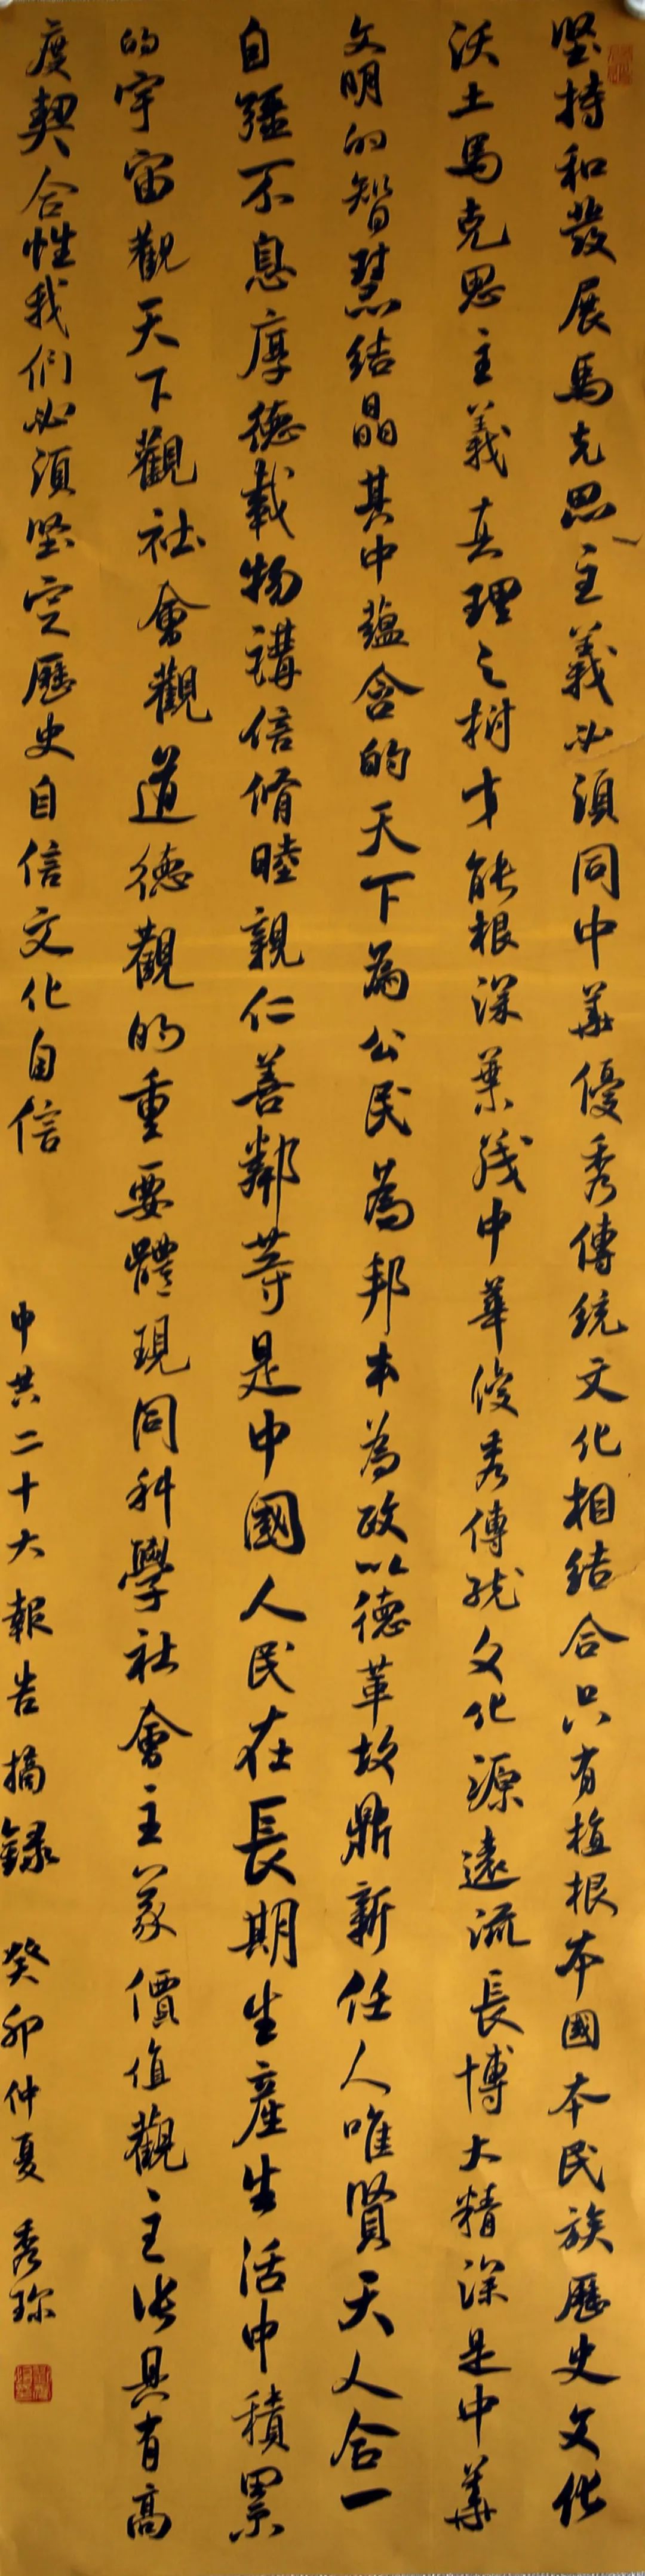 坚持和發展馬克思主義必須同中華優秀傳統文化相结合只有植根本國本民族歷史文化
沃土馬克思主義真理之樹才能根深葉茂中華優秀傳統文化源遠流長博大精深是中華
文明的智慧结晶其中蕴含的天下為公民為邦本為政以德革故鼎新任人唯賢天人合一
自强不息厚德載物講信脩睦親仁善鄰等是中國人民在長期生產生活中積累
的宇宙觀天下觀社會觀道德觀的重要體現同科學社會主義價值觀主张具有高
度契合性我们必須坚定歷史自信文化自信
中共二十大報告摘録 癸卯仲夏 秀珍